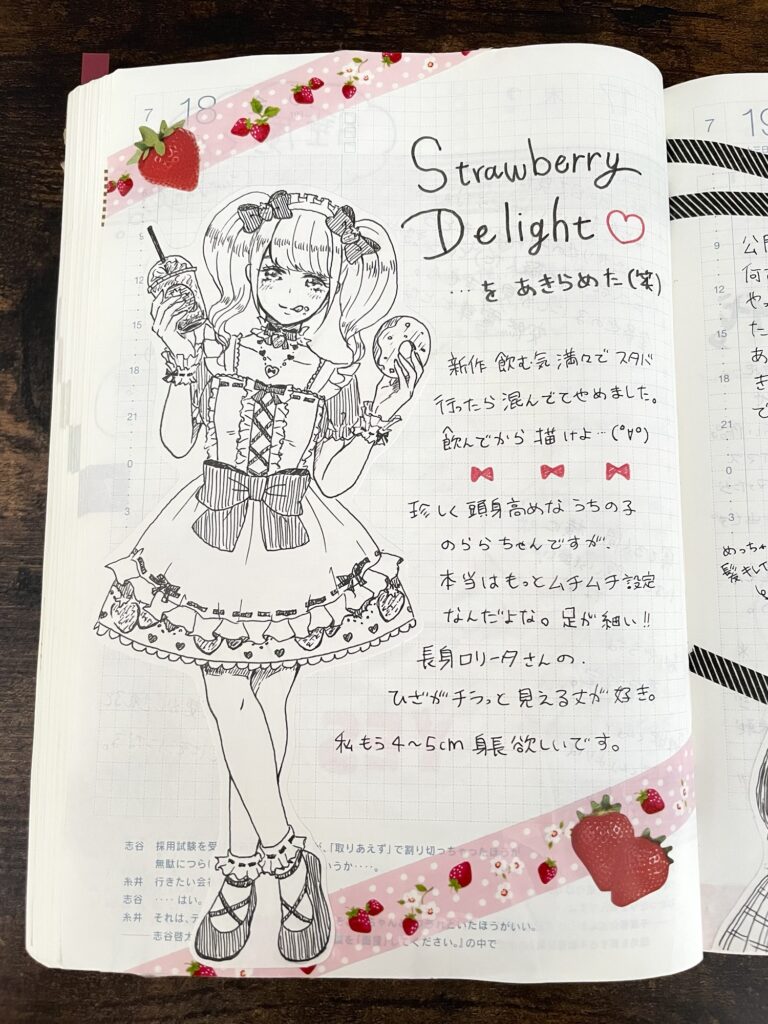 7 18
Strawberry
Delight
…を あきらめた(笑)
新作 飲む気 満々で スタバ
行ったら 混んでてやめました。
飲んでから 描けよ…(°∀°)
珍しく 頭身高めな うちの子
のらら ちゃんですが、
本当は もっと ムチムチ 設定
なんだよな。 足が 細い!!
長身ロリータさんの、
ひざが チラっと 見える丈が 好き。
私 もう 4〜5cm 身長 欲しいです。
9
12
15
18
21
0
3
志谷 採用試験を受 、「取りあえず」で割り切っちゃったほうが
無駄につら いうか‥‥。
糸井 行きたい会社
志谷 ‥‥はい。
糸井 それは、 といたほうがいい。
志谷啓太 してください。』の中で
7 19
9
12
15
18
21
0
3
公
何
や
た
あ
き
で
めっちゃ
髪